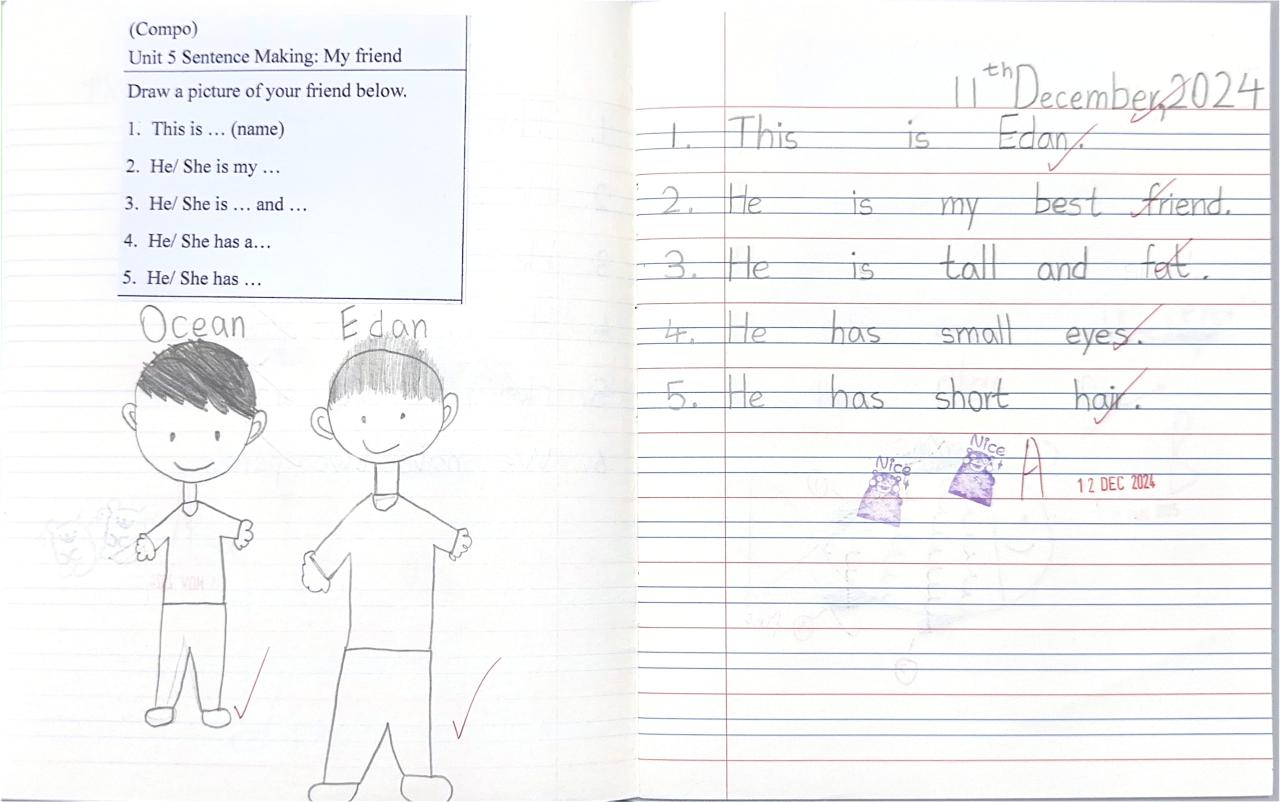 (Compo)
Unit 5 Sentence Making: My friend
Draw a picture of your friend below.
1. This is … (name)
2. He/ She is my …
3. He/ She is … and …
4. He/ She has a…
5. He/ She has …
Ocean Edan
11th December, 2024
1. This is Edan.
2. He is my best friend.
3. He is tall and fat.
4. He has small eyes.
5. He has short hair.
Nice Nice A 12 DEC 2024